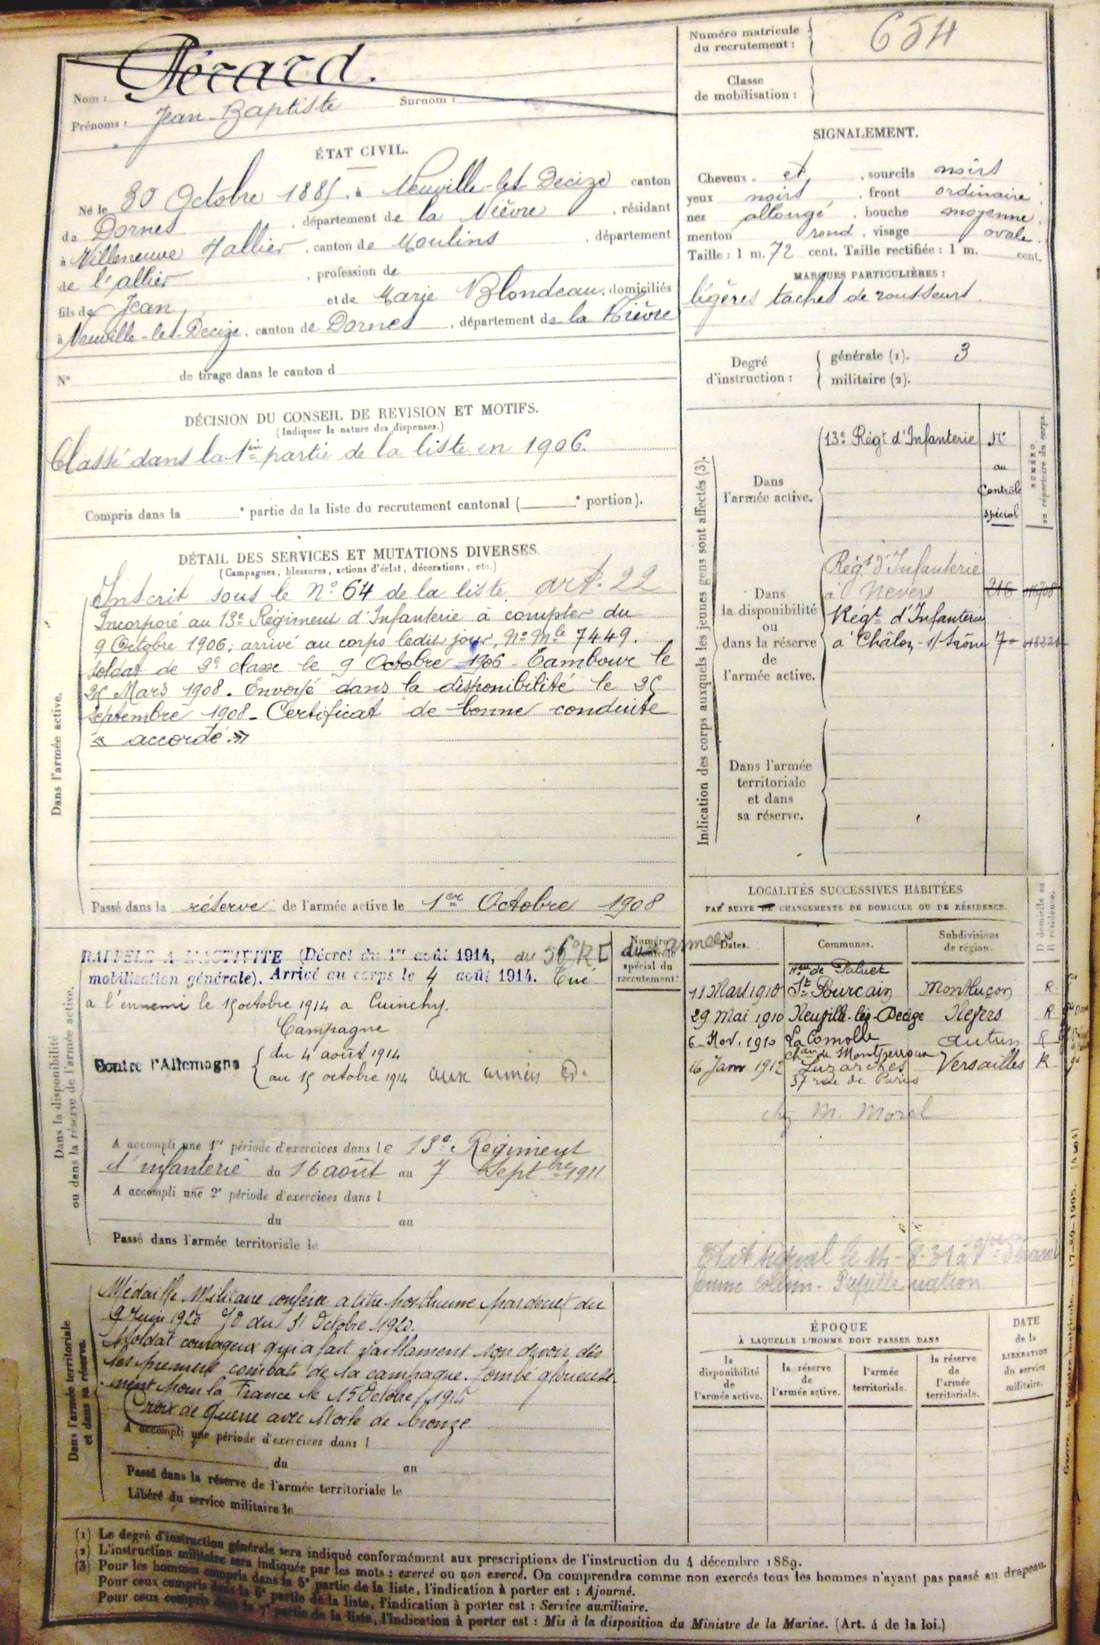 Numéro matricule du recrutement : 654
Classe de mobilisation :
Nom : Pérard.
Prénoms : Jean-Baptiste Surnom :
ÉTAT CIVIL.
Né le 30 Octobre 1885, à Neuville-les-Decize canton
de Dornes, département de la Nièvre, résidant
à Villeneuve s/allier, canton de Moulins, département
de l'allier, profession de
fils de Jean et de Marie Blondeau, domiciliés
à Neuville-les-Decize, canton de Dornes, département de la Nièvre
N° de tirage dans le canton d
DÉCISION DU CONSEIL DE REVISION ET MOTIFS.
(Indiquer la nature des dispenses.)
Classé dans la 1ère partie de la liste en 1906.
Compris dans la e partie de la liste du recrutement cantonal ( e portion).
SIGNALEMENT.
Cheveux et, sourcils noirs
yeux noirs, front ordinaire,
nez allongé, bouche moyenne,
menton rond, visage ovale.
Taille : 1 m. 72 cent. Taille rectifiée : 1 m. cent.
MARQUES PARTICULIÈRES :
légères taches de rousseurs.
Degré d'instruction : générale (1). 3
militaire (2).
DÉTAIL DES SERVICES ET MUTATIONS DIVERSES.
(Campagnes, blessures, actions d'éclat, décorations, etc.)
Dans l'armée active.
Inscrit sous le N° 64 de la liste. art. 22
Incorporé au 13e Régiment d'Infanterie à compter du
9 Octobre 1906, arrivé au corps ledit jour, N° Mle 7449.
soldat de 2e classe le 9 Octobre 1906 - Tambour le
25 Mars 1908. Envoyé dans la disponibilité le 25
Septembre 1908 - Certificat de bonne conduite
« accordé »
Passé dans la réserve de l'armée active le 1er Octobre 1908
Indication des corps auxquels les jeunes gens sont affectés (3).
NUMÉRO au répertoire du corps
Dans l'armée active.
13e Régt d'Infanterie
au
Contrôle
spécial
Dans la disponibilité ou dans la réserve de l'armée active.
Régt d'Infanterie
à Nevers 216
Régt d'Infanterie
à Châlon s/Saône
Dans l'armée territoriale et dans sa réserve.
LOCALITÉS SUCCESSIVES HABITÉES
PAR SUITE DE CHANGEMENTS DE DOMICILE OU DE RÉSIDENCE.
Dates. Communes. Subdivisions de région. D. domicile ou R. résidence.
11 Mars 1910 St Pourçain Montluçon R
29 Mai 1910 Neuville-les-Decize Nevers R
6 Nov. 1910 La Comelle Autun R
16 Janv 1912 Luzarches Versailles R
57 rue de Paris
chez M. Morel
Dans la disponibilité ou dans la réserve de l'armée active.
Numéro au contrôle spécial du recrutement :
RAPPELÉ A L'ACTIVITÉ (Décret du 1er août 1914, au 56e RI aux armées
mobilisation générale). Arrivé au corps le 4 août 1914. Tué
a l'ennemi le 15 octobre 1914 a Cuinchy.
Campagne
Contre l'Allemagne du 4 août 1914
au 15 octobre 1914 aux armées
A accompli une 1re période d'exercices dans le 13e Régiment
d'infanterie du 16 août au 7 Septbre 1911
A accompli une 2e période d'exercices dans l
du au
Passé dans l'armée territoriale le
Dans l'armée territoriale et dans sa réserve.
Médaille Militaire conférée a titre posthume par décret du
9 Juin 1920 JO du 31 Octobre 1920.
Soldat courageux qui a fait vaillamment son devoir dès
les premiers combats de la campagne. Tombé glorieuse-
ment pour la France le 15 Octobre 1914
Croix de guerre avec étoile de bronze
A accompli une période d'exercices dans l
du au
Passé dans la réserve de l'armée territoriale le
Libéré du service militaire le
ÉPOQUE
À LAQUELLE L'HOMME DOIT PASSER DANS
la disponibilité de l'armée active.
la réserve de l'armée active.
l'armée territoriale.
la réserve de l'armée territoriale.
DATE de la LIBÉRATION du service militaire.
(1) Le degré d'instruction générale sera indiqué conformément aux prescriptions de l'instruction du 4 décembre 1889.
(2) L'instruction militaire sera indiquée par les mots : exercé ou non exercé. On comprendra comme non exercés tous les hommes n'ayant pas passé au drapeau.
(3) Pour les hommes compris dans la 5e partie de la liste, l'indication à porter est : Ajourné.
Pour ceux compris dans la 6e partie de la liste, l'indication à porter est : Service auxiliaire.
Pour ceux compris dans la 7e partie de la liste, l'indication à porter est : Mis à la disposition du Ministre de la Marine. (Art. 4 de la loi.)